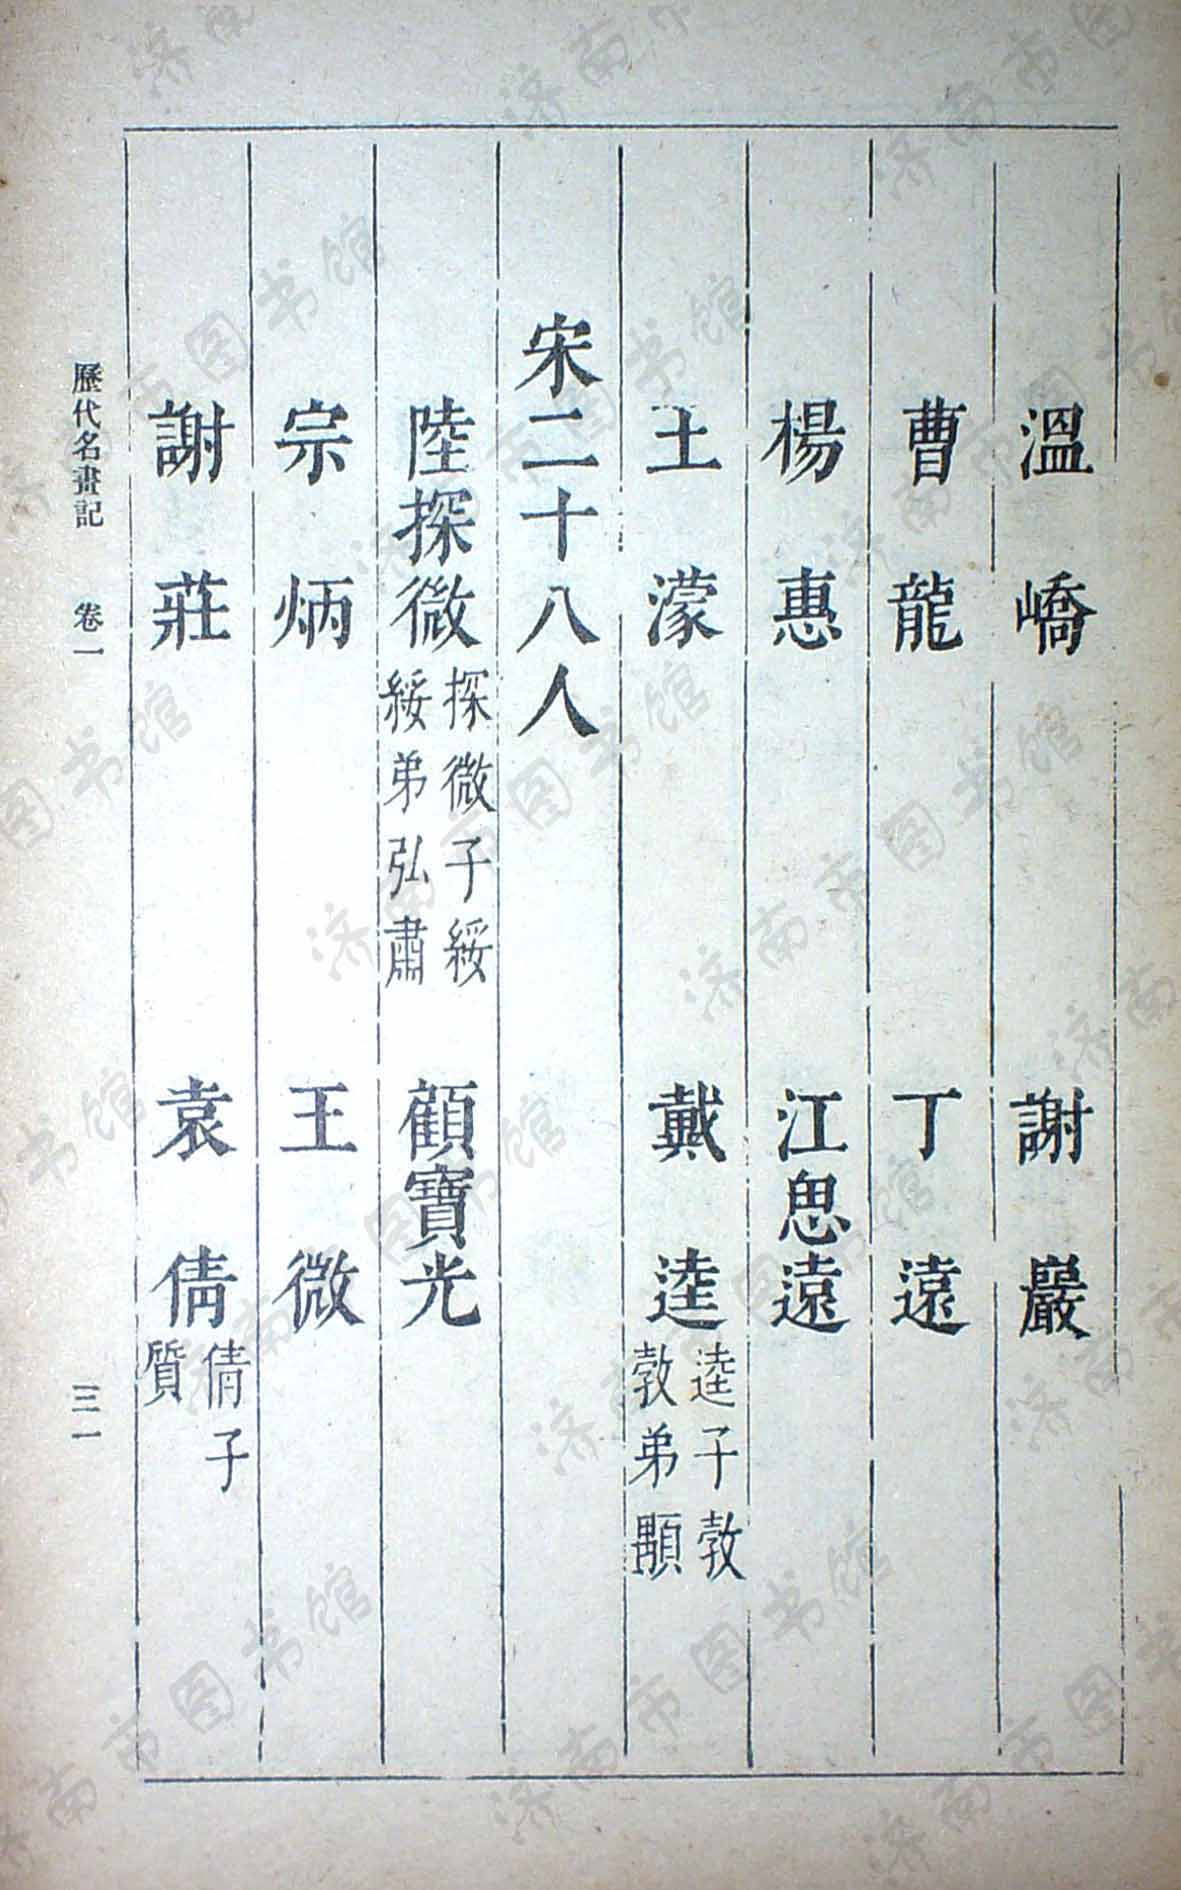 溫嶠　謝巖
曹龍　丁遠
楊惠　江思遠
王濛　戴逵逵子㪍㪍弟顒
宋二十八人
陸探微探微子綏綏弟弘肅　顧寶光
宗炳　王微
謝莊　袁倩倩子質
歷代名畫記　卷一　三一
济南市图书馆